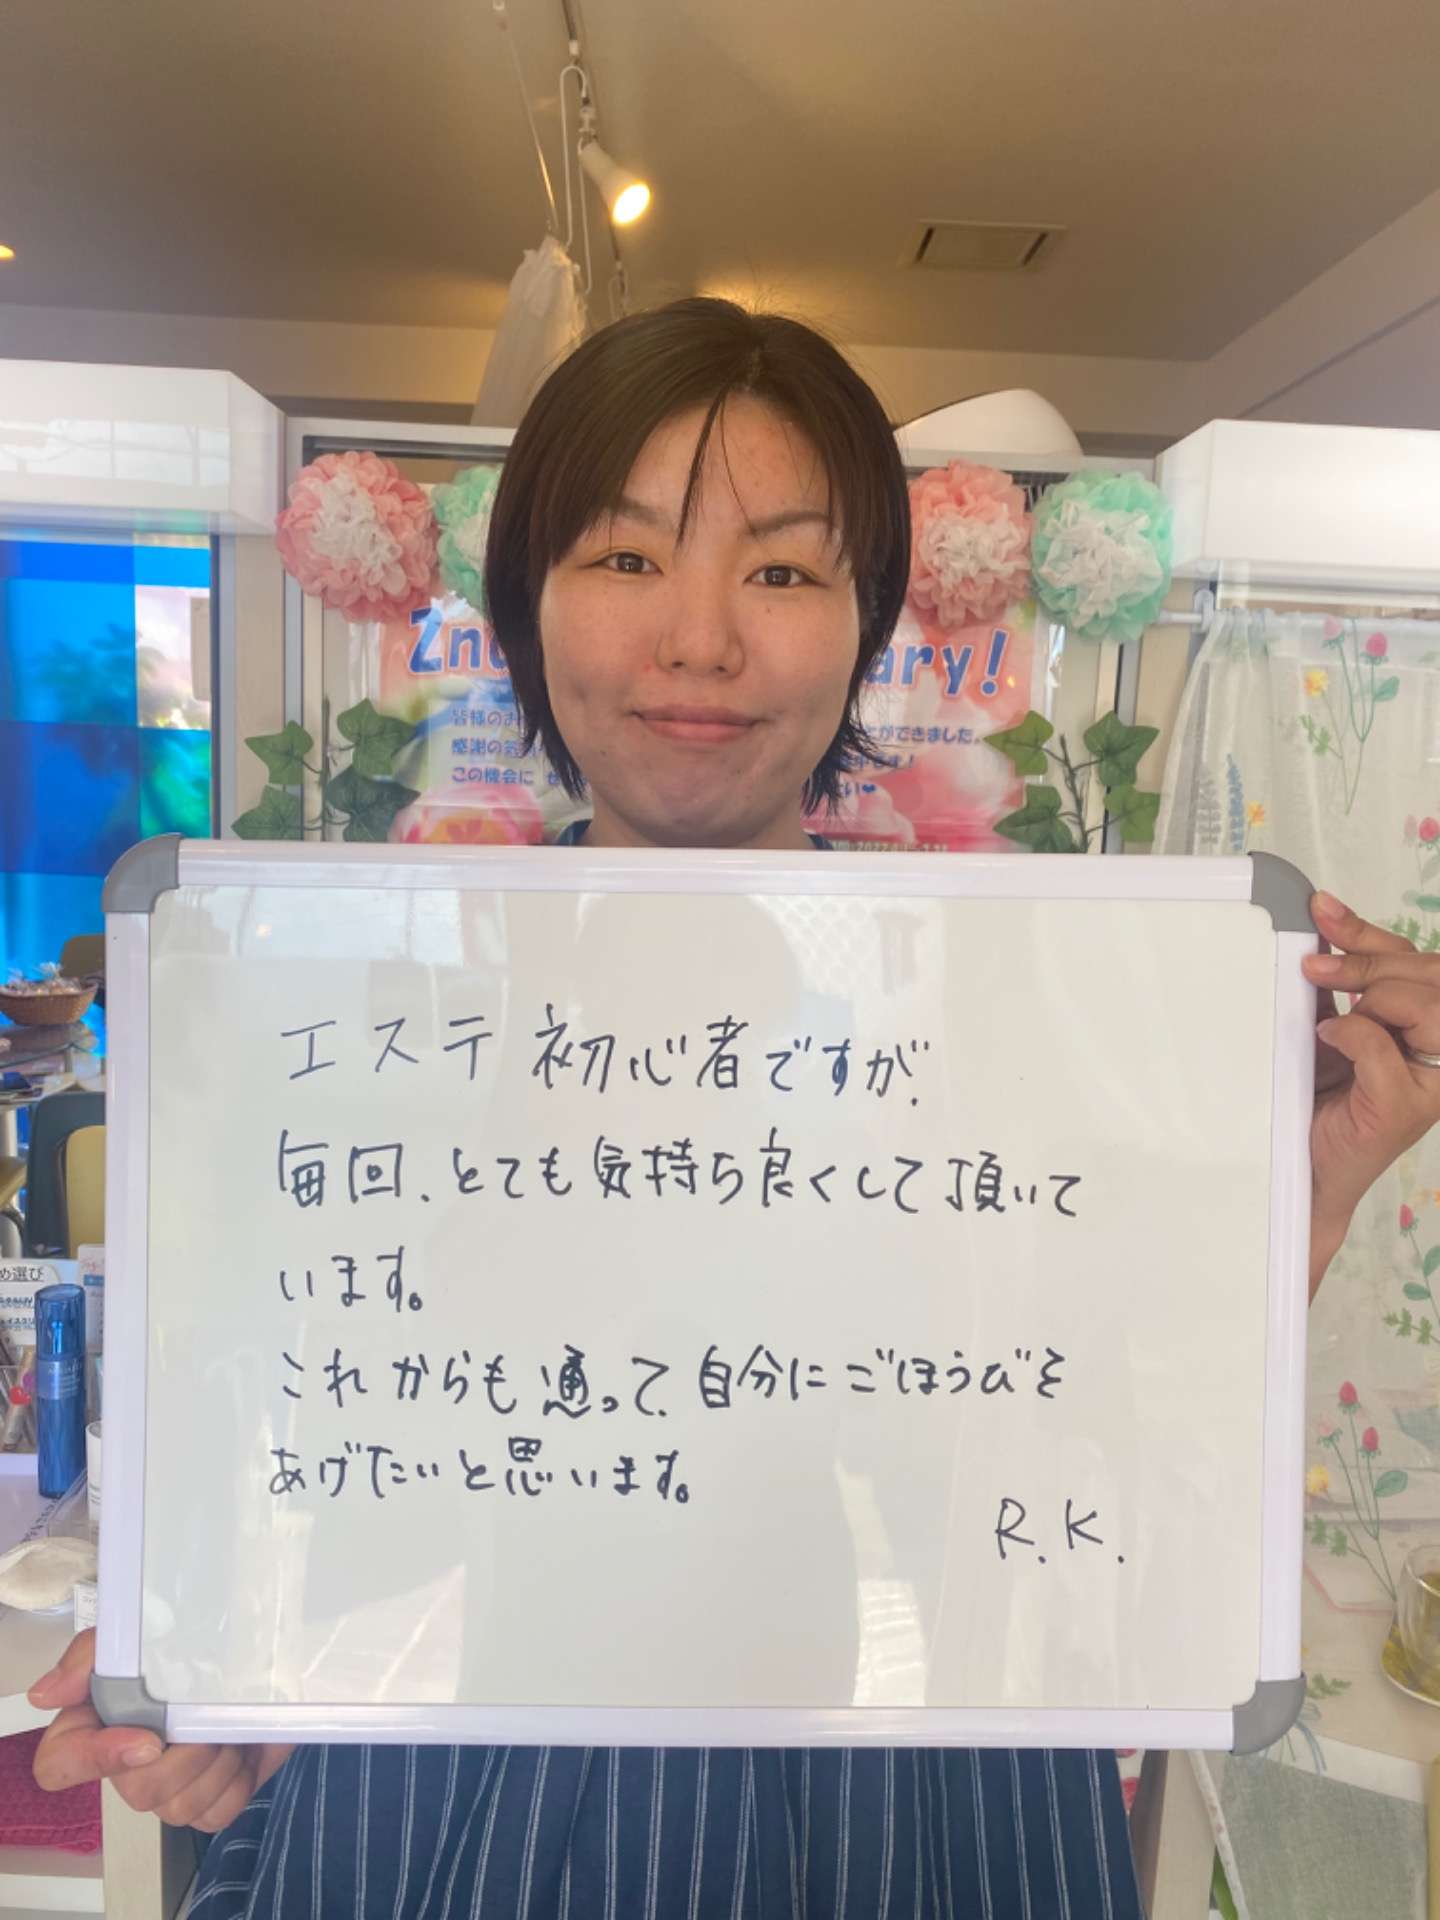 2nd
ary!
皆様のお
とができました。
感謝の気持
中です!
この機会に ぜ
い♥
エステ初心者ですが、
毎回、とても気持ち良くして頂いて
います。
これからも通って、自分にごほうびを
あげたいと思います。
R.K.
め選び